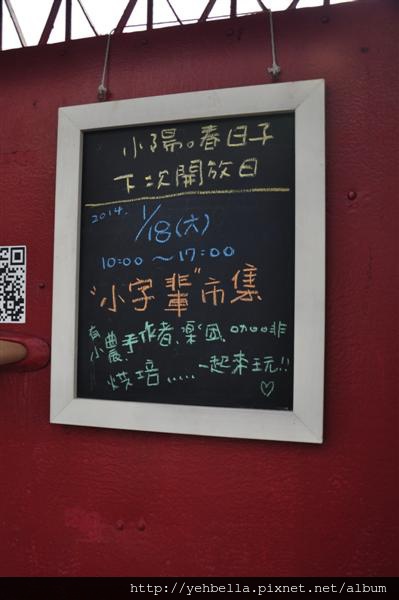 小陽。春日子
下次開放日
2014. 1/18(六)
10:00～17:00
"小字輩"市集
有小農、手作者、樂團、咖啡
烘培.....一起來玩!!♡
http://yehbella.pixnet.net/album